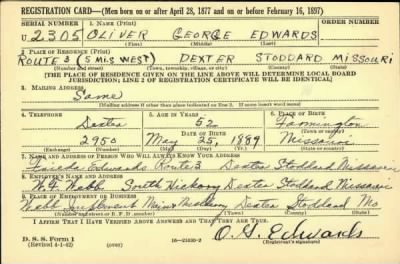 REGISTRATION CARD—(Men born on or after April 28, 1877 and on or before February 16, 1897)
SERIAL NUMBER 1. NAME (Print) ORDER NUMBER
U 2305 OLIVER GEORGE EDWARDS
(First) (Middle) (Last)
2. PLACE OF RESIDENCE (Print)
ROUTE 3 (5 Mis. WEST) DEXTER STODDARD MISSOURI
(Number and street) (Town, township, village, or city) (County) (State)
[THE PLACE OF RESIDENCE GIVEN ON THE LINE ABOVE WILL DETERMINE LOCAL BOARD
JURISDICTION; LINE 2 OF REGISTRATION CERTIFICATE WILL BE IDENTICAL]
3. MAILING ADDRESS
Same
[Mailing address if other than place indicated on line 2. If same insert word same]
4. TELEPHONE 5. AGE IN YEARS 6. PLACE OF BIRTH
Dexter 52 Farmington
DATE OF BIRTH (Town or county)
295 May 25, 1889 Missouri
(Exchange) (Number) (Mo.) (Day) (Yr.) (State or country)
7. NAME AND ADDRESS OF PERSON WHO WILL ALWAYS KNOW YOUR ADDRESS
Edwards Route 3 Dexter Stoddard Missouri
8. EMPLOYER'S NAME AND ADDRESS
W. F. Webb South Hickory Dexter Stoddard Missouri
9. PLACE OF EMPLOYMENT OR BUSINESS
Webb Implement Main & Hickory Dexter Stoddard Mo
(Number and street or R. F. D. number) (Town) (County) (State)
I AFFIRM THAT I HAVE VERIFIED ABOVE ANSWERS AND THAT THEY ARE TRUE.
D. S. S. Form 1
(Revised 4-1-42) (over) 16—21630-2 O. G. Edwards